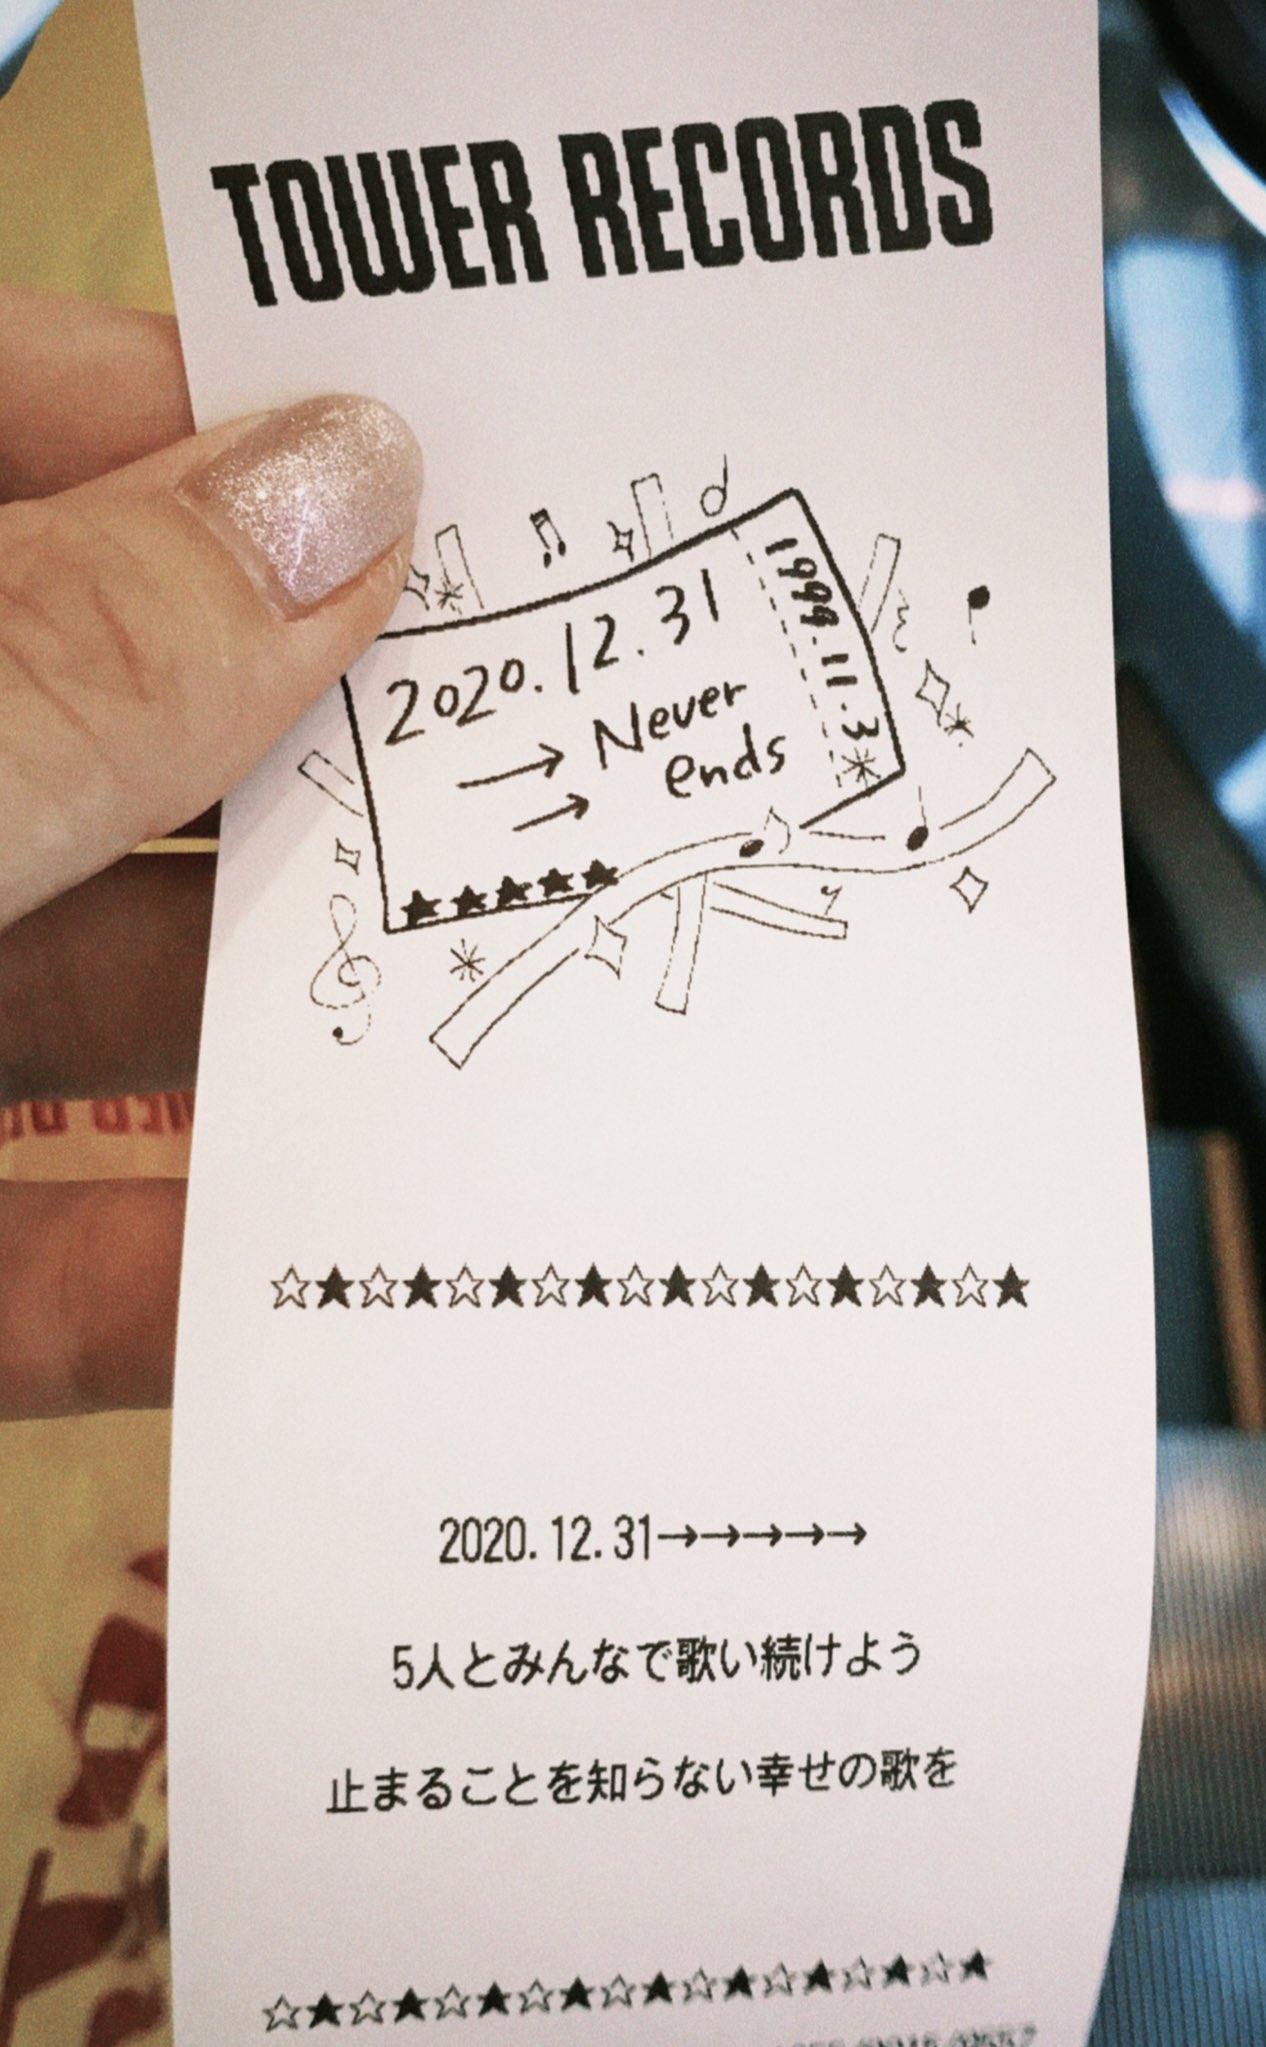 TOWER RECORDS
2020.12.31
1999.11.3
→ Never
→ ends
★★★★★
☆★☆★☆★☆★☆★☆★☆★☆★☆★
2020.12.31→→→→→
5人とみんなで歌い続けよう
止まることを知らない幸せの歌を
☆★☆★☆★☆★☆★☆★☆★☆★☆★